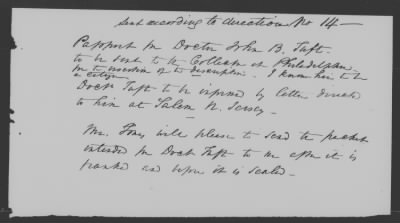 sent according to direction No 14 —
Passport for Doctor John B. Tuft.
to be sent to the Collector at Philadelphia
for the insertion of the description. I know him to be
a citizen
Doct Tuft to be informed by letter directed
to him at Salem N. Jersey.
Mr. will please to send the packet
intended for Doct Tuft to me after it is
franked and before it is sealed —